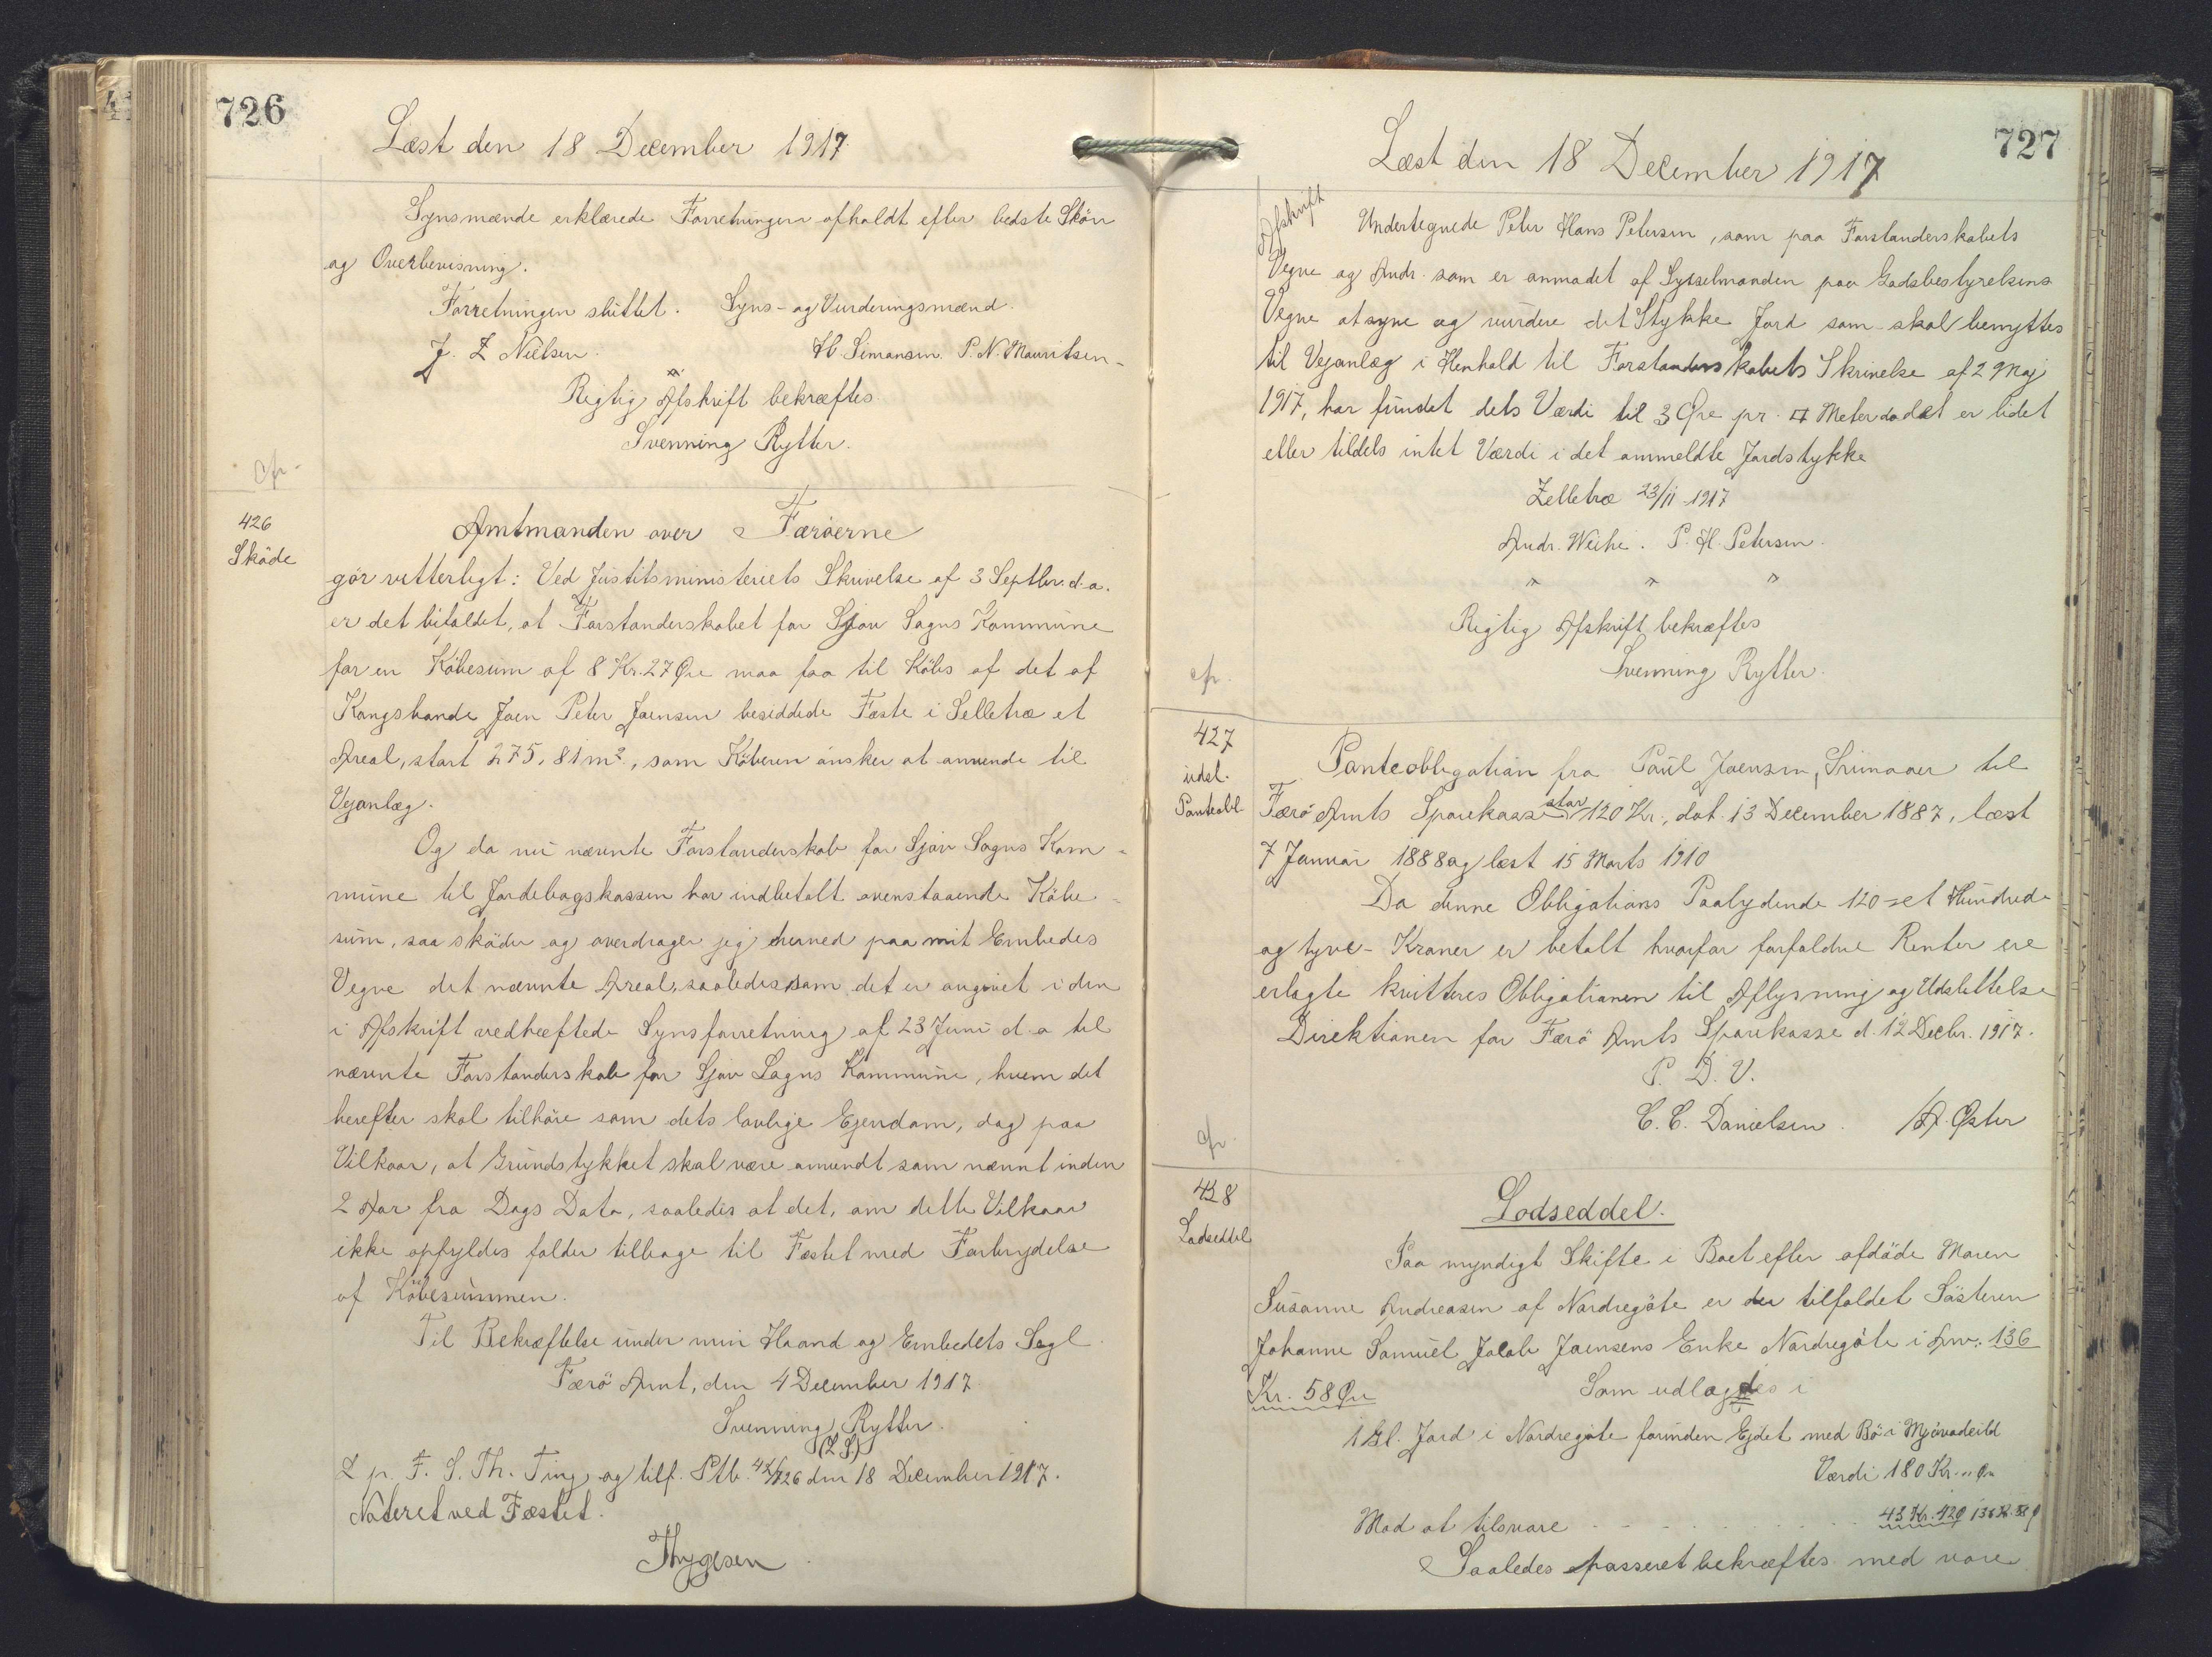 726
Læst den 18 December 1917
Synsmænde erklærede Forretningen afholdt efter bedste Skön
og Overbevisning.
Forretningen sluttet. Syns- og Vurderingsmænd.
J. Z Nielsen. H. Simonsen. P. N. Mauritsen
Rigtig Afskrift bekræftes
Svenning Rytter.
cfr
426
Sköde
Amtmanden over Færöerne
gör vitterligt: Ved Justitsministeriets Skrivelse af 3 Septbr. d.a.
er det bifaldet, at Forstanderskabet for Sjov Sogns Kommune
for en Köbesum af 8 Kr. 27 Øre maa faa til Köbs af det af
Kongsbonde Joen Peter Joensen besiddede Fæste i Selletræ et
Areal, stort 275,81 m², som Köberen önsker at anvende til
Vejanlæg.
Og da nu nævnte Forstanderskab for Sjov Sogns Kom-
mune til Jordebogskassen har indbetalt ovenstaaende Köbe-
sum, saa sköder og overdrager jeg herved paa mit Embedes
Vegne det nævnte Areal, saaledes som det er angivet i den
i Afskrift vedhæftede Synsforretning af 23 Juni d.a til
nævnte Forstanderskab for Sjov Sogns Kommune, hvem det
herefter skal tilhöre som dets lovlige Ejendom, dog paa
Vilkaar, at Grundstykket skal være anvendt som nævnt inden
2 Aar fra Dags Dato, saaledes at det, om dette Vilkaar
ikke opfyldes falder tilbage til Fæstet med Fortrydelse
af Köbesummen.
Til Bekræftelse under min Haand og Embedets Segl.
Færö Amt, den 4 December 1917
Svenning Rytter.
(L S)
L p. F. S. Th. Ting og tilf. Ptb. 42/726 den 18 December 1917.
Noteret ved Fæstet.
Thygesen
727
Læst den 18 December 1917
Afskrift
Undertegnede Peter Hans Petersen, som paa Forstanderskabets
Vegne og Andr. som er anmodet af Sysselmanden paa Godsbestyrelsens
Vegne at syne og vurdere det Stykke Jord som skal benyttes
til Vejanlæg i Henhold til Forstanderskabets Skrivelse af 2 Maj
1917, har fundet dets Værdi til 3 Øre pr. □ Meter da det er lidet
eller tildels intet Værdi i det ommeldte Jordstykke
Zelletræ 23/11 1917
Andr. Weihe. P. H. Petersen.
" " "
Rigtig Afskrift bekræftes
Svenning Rytter.
cfr.
427
udsl.
Panteobl
Panteobligation fra Paul Joensen, Srimoaer til
Færö Amts Sparekasse stor 120 Kr., dat. 13 December 1887, læst
7 Januar 1888 og læst 15 Marts 1910
Da denne Obligations Paalydende 120 - et Hundrede
og tyve - Kroner er betalt hvorfor forfaldne Renter ere
erlagte kvitteres Obligationen til Aflysning og Udslettelse
Direktionen for Færö Amts Sparekasse d. 12 Decbr. 1917.
P. D. V.
C. C. Danielsen. /A. Øster
cfr.
428
Lodseddel
Lodseddel.
Paa myndigt Skifte i Boet efter afdöde Maren
Susanne Andreasen af Nordregöte er der tilfaldet Sösteren
Johanne Samuel Jakob Joensens Enke Nordregöte i Arv: 136
Kr. 58 Øre Som udlagdes i
1 Gl. Jord i Nordregöte forinden Ejdet med Bö i Mjóvadeild
Værdi 180 Kr. " Øre
Mod at tilsvare - - - - - 43 Kr. 42 Ø 136 Kr. 58 Ø
Saaledes passeret bekræftes med vore